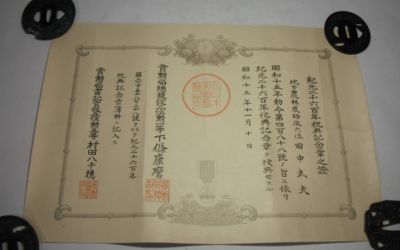 紀元二千六百年祝典記念章之證
地方農林技師従六位 田中武夫
昭和十五年勅令第四百八十八號ノ旨ニ依リ
紀元二千六百年祝典記念章ヲ授與セラル
昭和十五年十一月十日
賞勲局總裁 下條康麿
此證ヲ勘査シ紀元二千六百年
祝典記念章簿冊ニ記入ス
賞勲局書記官 村田八千穂